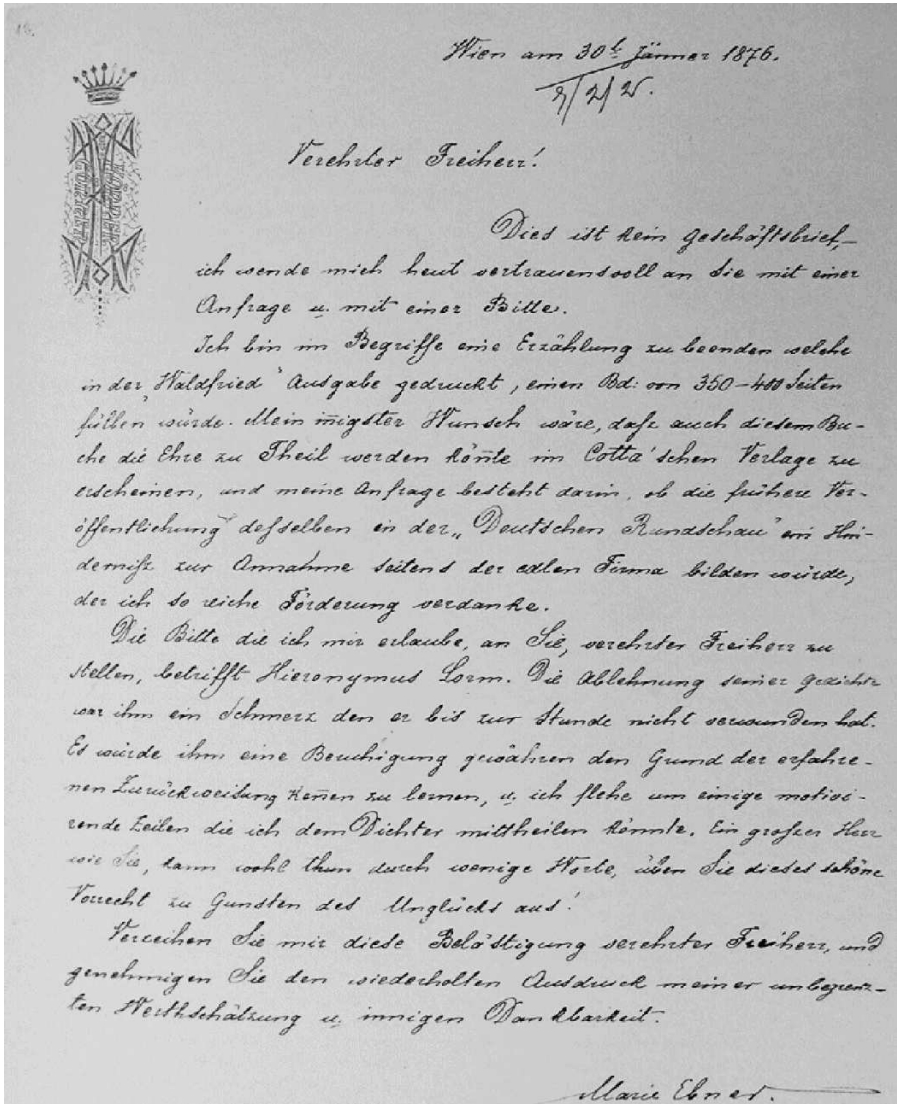 18.
Wien am 30t Jänner 1876.
Verehrter Freiherr!
Dies ist kein Geschäftsbrief,—
ich wende mich heut vertrauensvoll an Sie mit einer
Anfrage u. mit einer Bitte.
Ich bin im Begriffe eine Erzählung zu beenden welche
in der „Waldfried" Ausgabe gedruckt, einen Bd: von 350–400 Seiten
füllen würde. Mein iñigster Wunsch wäre, daſs auch diesem Bu-
che die Ehre zu Theil werden köñte im Cotta'schen Verlage zu
erscheinen, und meine Anfrage besteht darin, ob die frühere Ver-
öffentlichung deſselben in der „Deutschen Rundschau" ein Hin-
derniſs zur Annahme seitens der edlen Firma bilden würde,
der ich so reiche Förderung verdanke.
Die Bitte die ich mir erlaube, an Sie, verehrter Freiherr zu
stellen, betrifft Hieronymus Lorm. Die Ablehnung seiner Gedichte
war ihm ein Schmerz den er bis zur Stunde nicht verwunden hat.
Es würde ihm eine Beruhigung gewähren den Grund der erfahre-
nen Zurückweisung keñen zu lernen, u. ich flehe um einige motivi-
rende Zeilen die ich dem Dichter mittheilen könnte. Ein großer Herr
wie Sie, kann wohl thun durch wenige Worte, üben Sie dieses schöne
Vorrecht zu Gunsten des Unglücks aus!
Verzeihen Sie mir diese Belästigung verehrter Freiherr, und
genehmigen Sie den wiederholten Ausdruck meiner unbegrenz-
ten Werthschätzung u. innigen Dankbarkeit.
Marie Ebner.